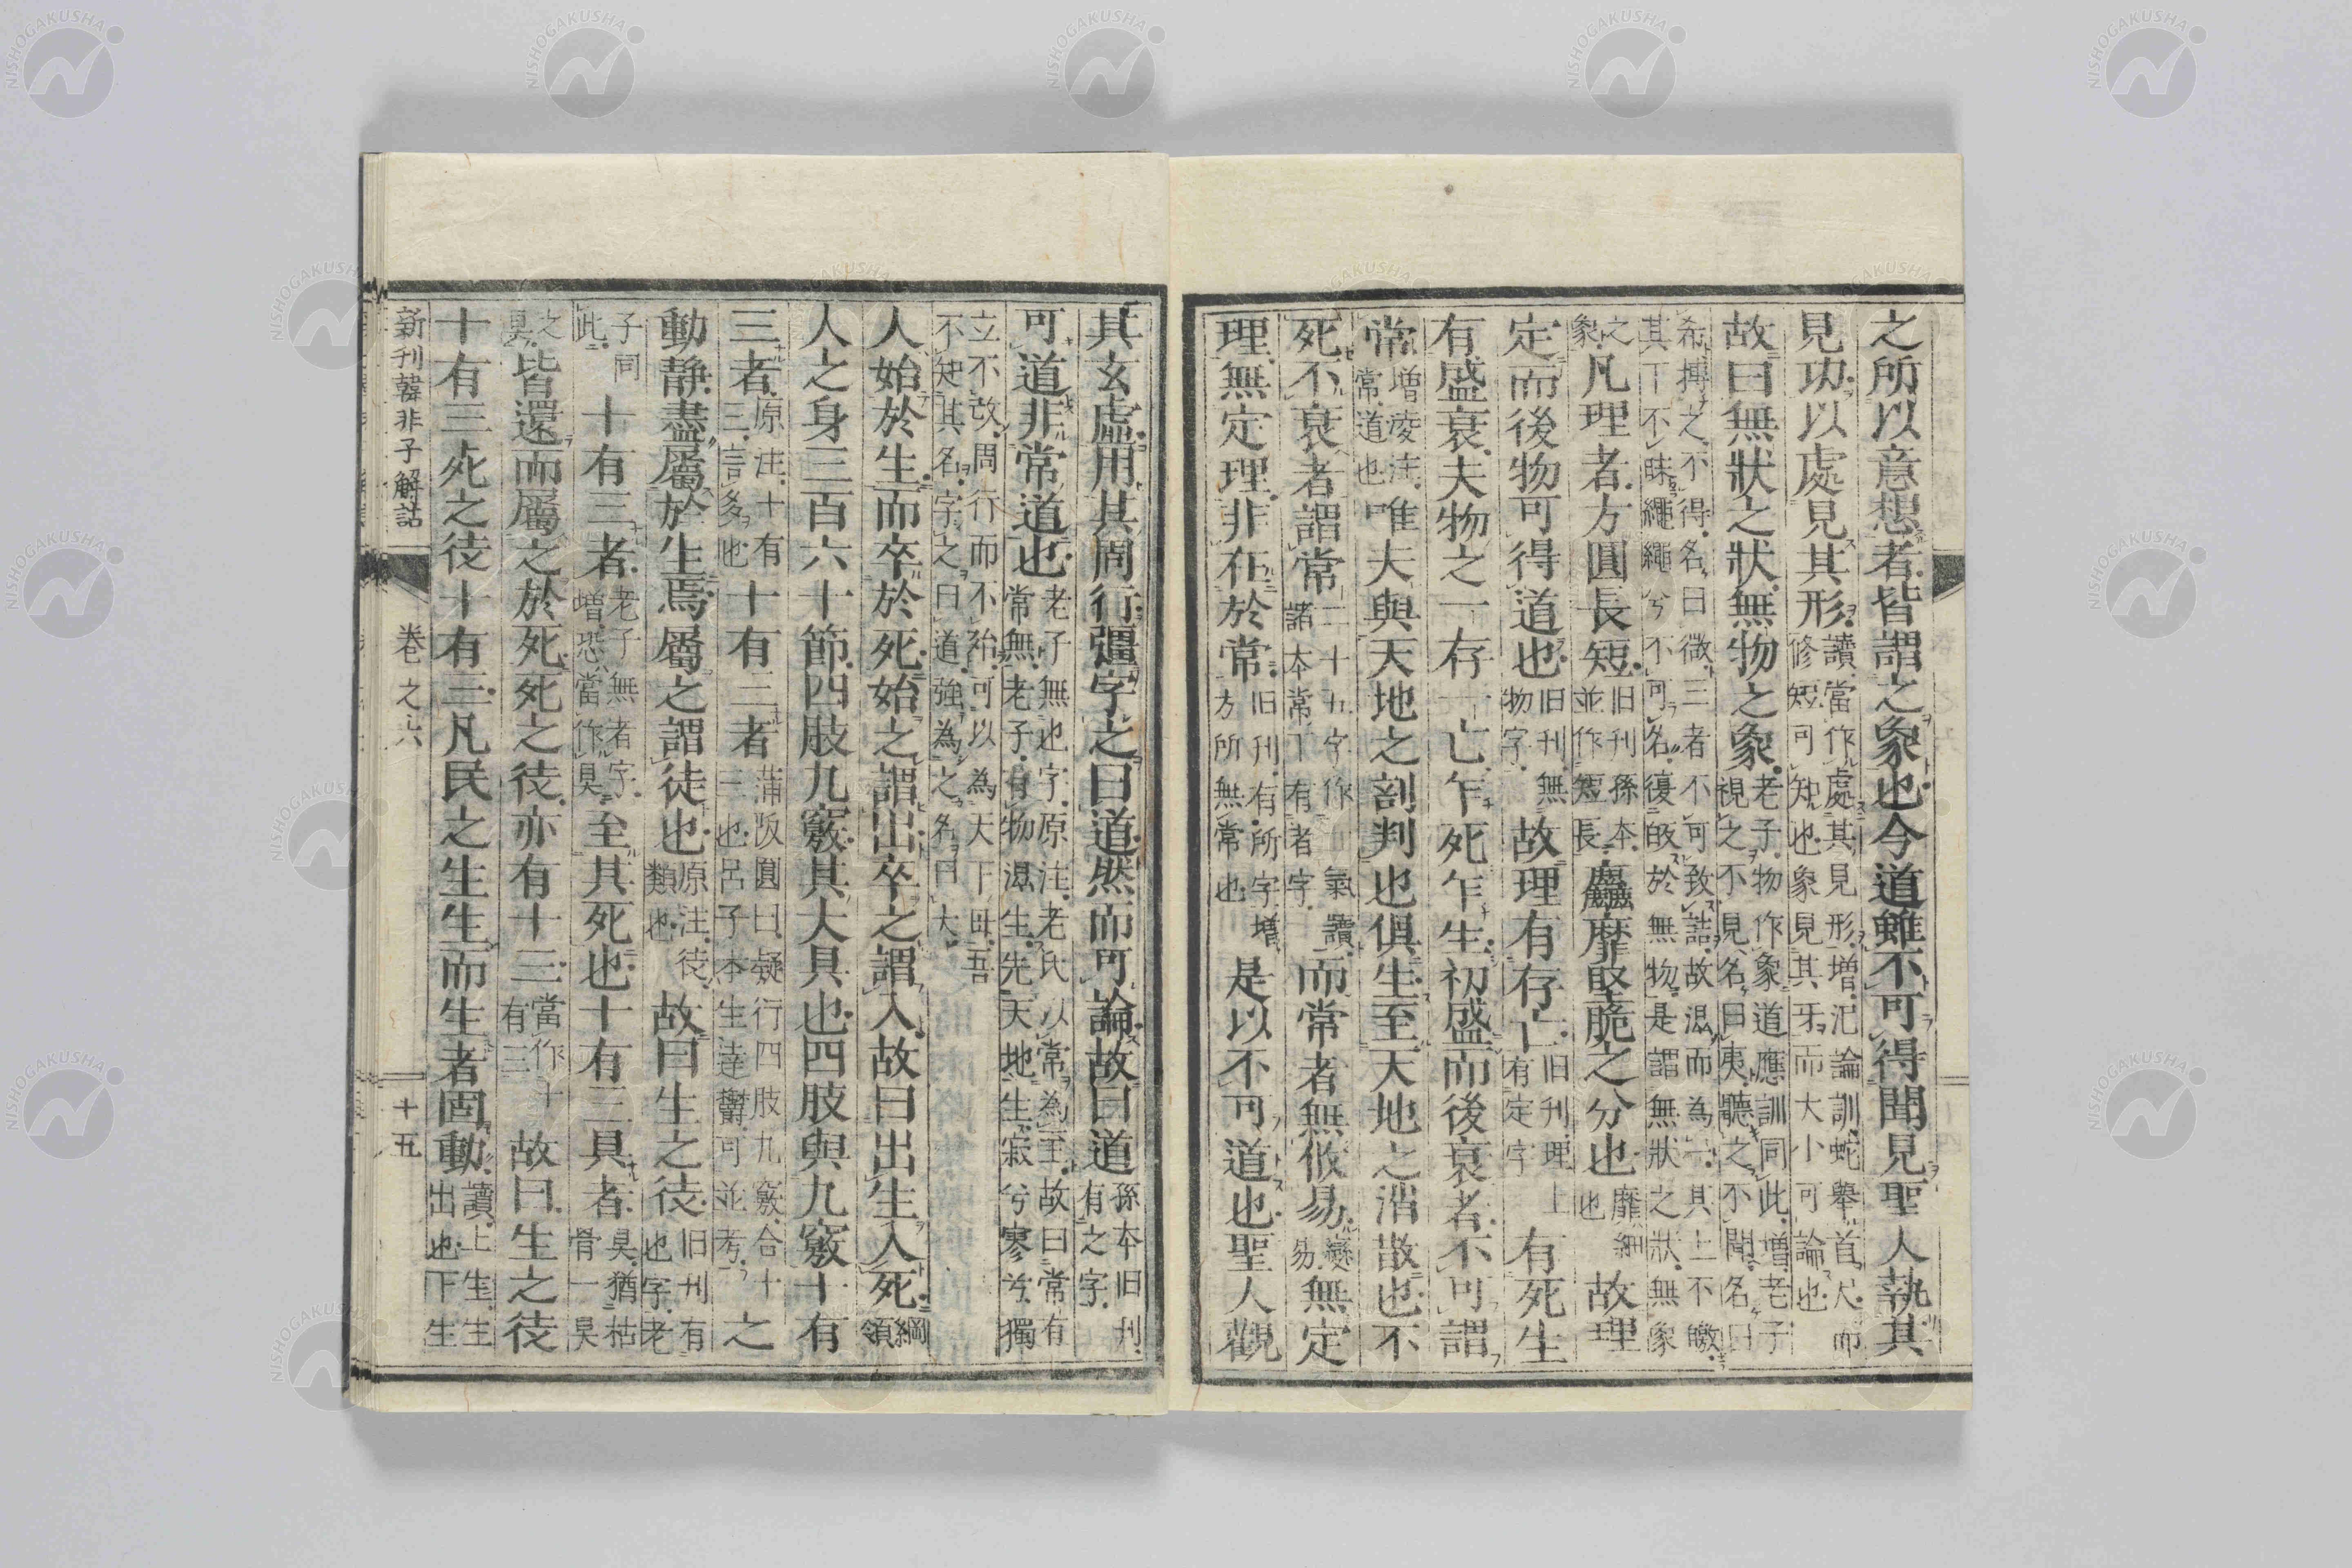 之所以意想者皆謂之象也今道雖不可得聞見聖人執其
見功以處見其形讀當作處其見形增汜論訓蛇舉首尺而修短可知也象見其牙而大小可論也
故曰無狀之狀無物之象老子物作象道應訓同此增老子視之不見名曰夷聽之不聞名曰
希搏之不得名曰微三者不可致詰故混而為一其上不皦其下不昧繩繩兮不可名復皈於無物是謂無狀之狀無象
之象凡理者方圓長短旧刊孫本並作短長麤靡堅脆之分也靡細也故理
定而後物可得道也旧刊無物字故理有存亡旧刊理上有定字有死生
有盛衰夫物之一存一亡乍死乍生初盛而後衰者不可謂
常增凌注常道也唯夫與天地之剖判也俱生至天地之消散也不
死不衰者謂常二十九字作一氣讀諸本常下有者字而常者無攸易變易無定
理無定理非在於常旧刊有所字增方所無常也是以不可道也聖人觀
其玄虛用其周行彊字之曰道然而可論故曰道孫本旧刊有之字
可道非常道也老子無也字原注老氏以常為至故曰常有常無老子有物混生先天地生寂兮寥兮獨
立不改周行而不殆可以為天下母吾不知其名字之曰道強為之名曰大
人始於生而卒於死始之謂出卒之謂入故曰出生入死綱領
人之身三百六十節四肢九竅其大具也四肢與九竅十有
三者原注十有三言多也十有三者蒲阪圓曰疑行四肢九竅合十三也呂子本生達鬱可並考之
動靜盡屬於生焉屬之謂徒也原注徒類也故曰生之徒旧刊有也字老
子同此十有三者老子無者字增恐當作具至其死也十有三具者具猶枯骨一具
之具皆還而屬之於死死之徒亦有十三當作十有三故曰生之徒
十有三死之徒十有三凡民之生生而生者固動讀上生生出也下生
新刊韓非子解詁 卷之六 十五